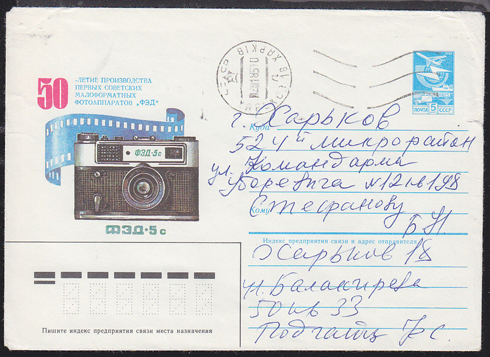 50
-ЛЕТИЕ ПРОИЗВОДСТВА
ПЕРВЫХ СОВЕТСКИХ
МАЛОФОРМАТНЫХ
ФОТОАППАРАТОВ „ФЭД"
ФЭД-5с
ФЭД·5с
ХАРКІВ
ПОЧТА 5 СССР
Куда
г. Харьков
524 микрорайон
ул. Командарма
№ 12 кв 198
Кому
Стефанову
Индекс предприятия связи и адрес отправителя
Харьков 18
50 кв 33
Пишите индекс предприятия связи места назначения